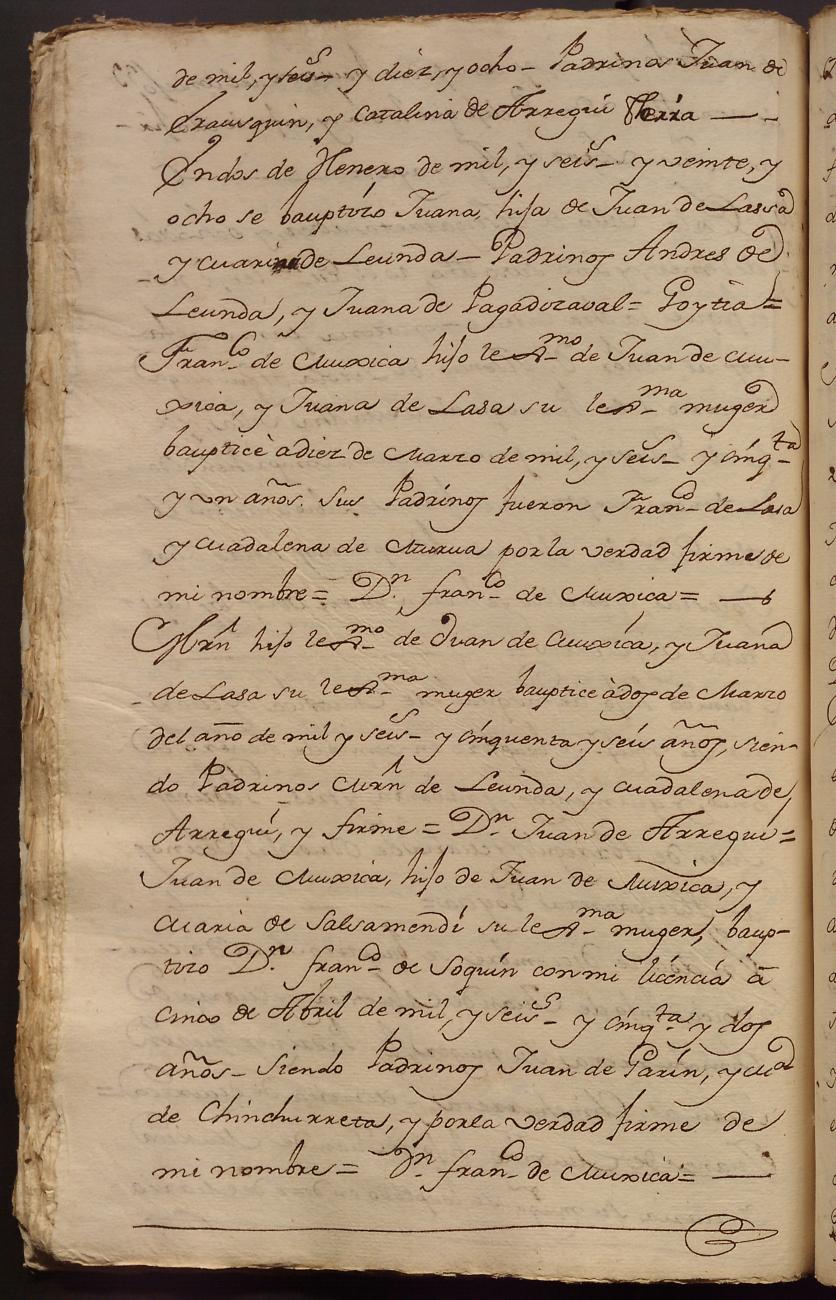 de mil, y seis.s y diez, y ocho - Padrinos Juan de
Frausquin, y Catalina de Arregui
En dos de Henero de mil, y seis.s y veinte, y
ocho se bauptizo Juana, hija de Juan de Lassa
y Maria de Leunda - Padrinos Andres de
Leunda, y Juana de Pagadizaval = Goytia =
Fran.co de Muxica hijo leg.mo de Juan de Mu-
xica, y Juana de Lasa su leg.ma muger
bauptice à diez de Marzo de mil, y seis.s y cinq.ta
y un años. Sus Padrinos fueron Fran.co de Lasa
y Madalena de Murua por la verdad firme de
mi nombre = D.n fran.co de Muxica =
Mrn hijo leg.mo de Juan de Muxica, y Juana
de Lasa su leg.ma muger bauptice à dos de Marzo
del año de mil y seis.s y cinquenta y seis años, sien-
do Padrinos Mrn de Leunda, y Madalena de
Arregui, y firme = D.n Juan de Arregui =
Juan de Muxica, hijo de Juan de Muxica, y
Maria de Salsamendi su leg.ma muger, baup-
tizo D.n fran.co de Soquin con mi licencia à
cinco de Abril de mil, y seis.s y cinq.ta y dos
años - Siendo Padrinos Juan de Garin, y M.a
de Chinchurreta, y por la verdad firme de
mi nombre = D.n fran.co de Muxica =